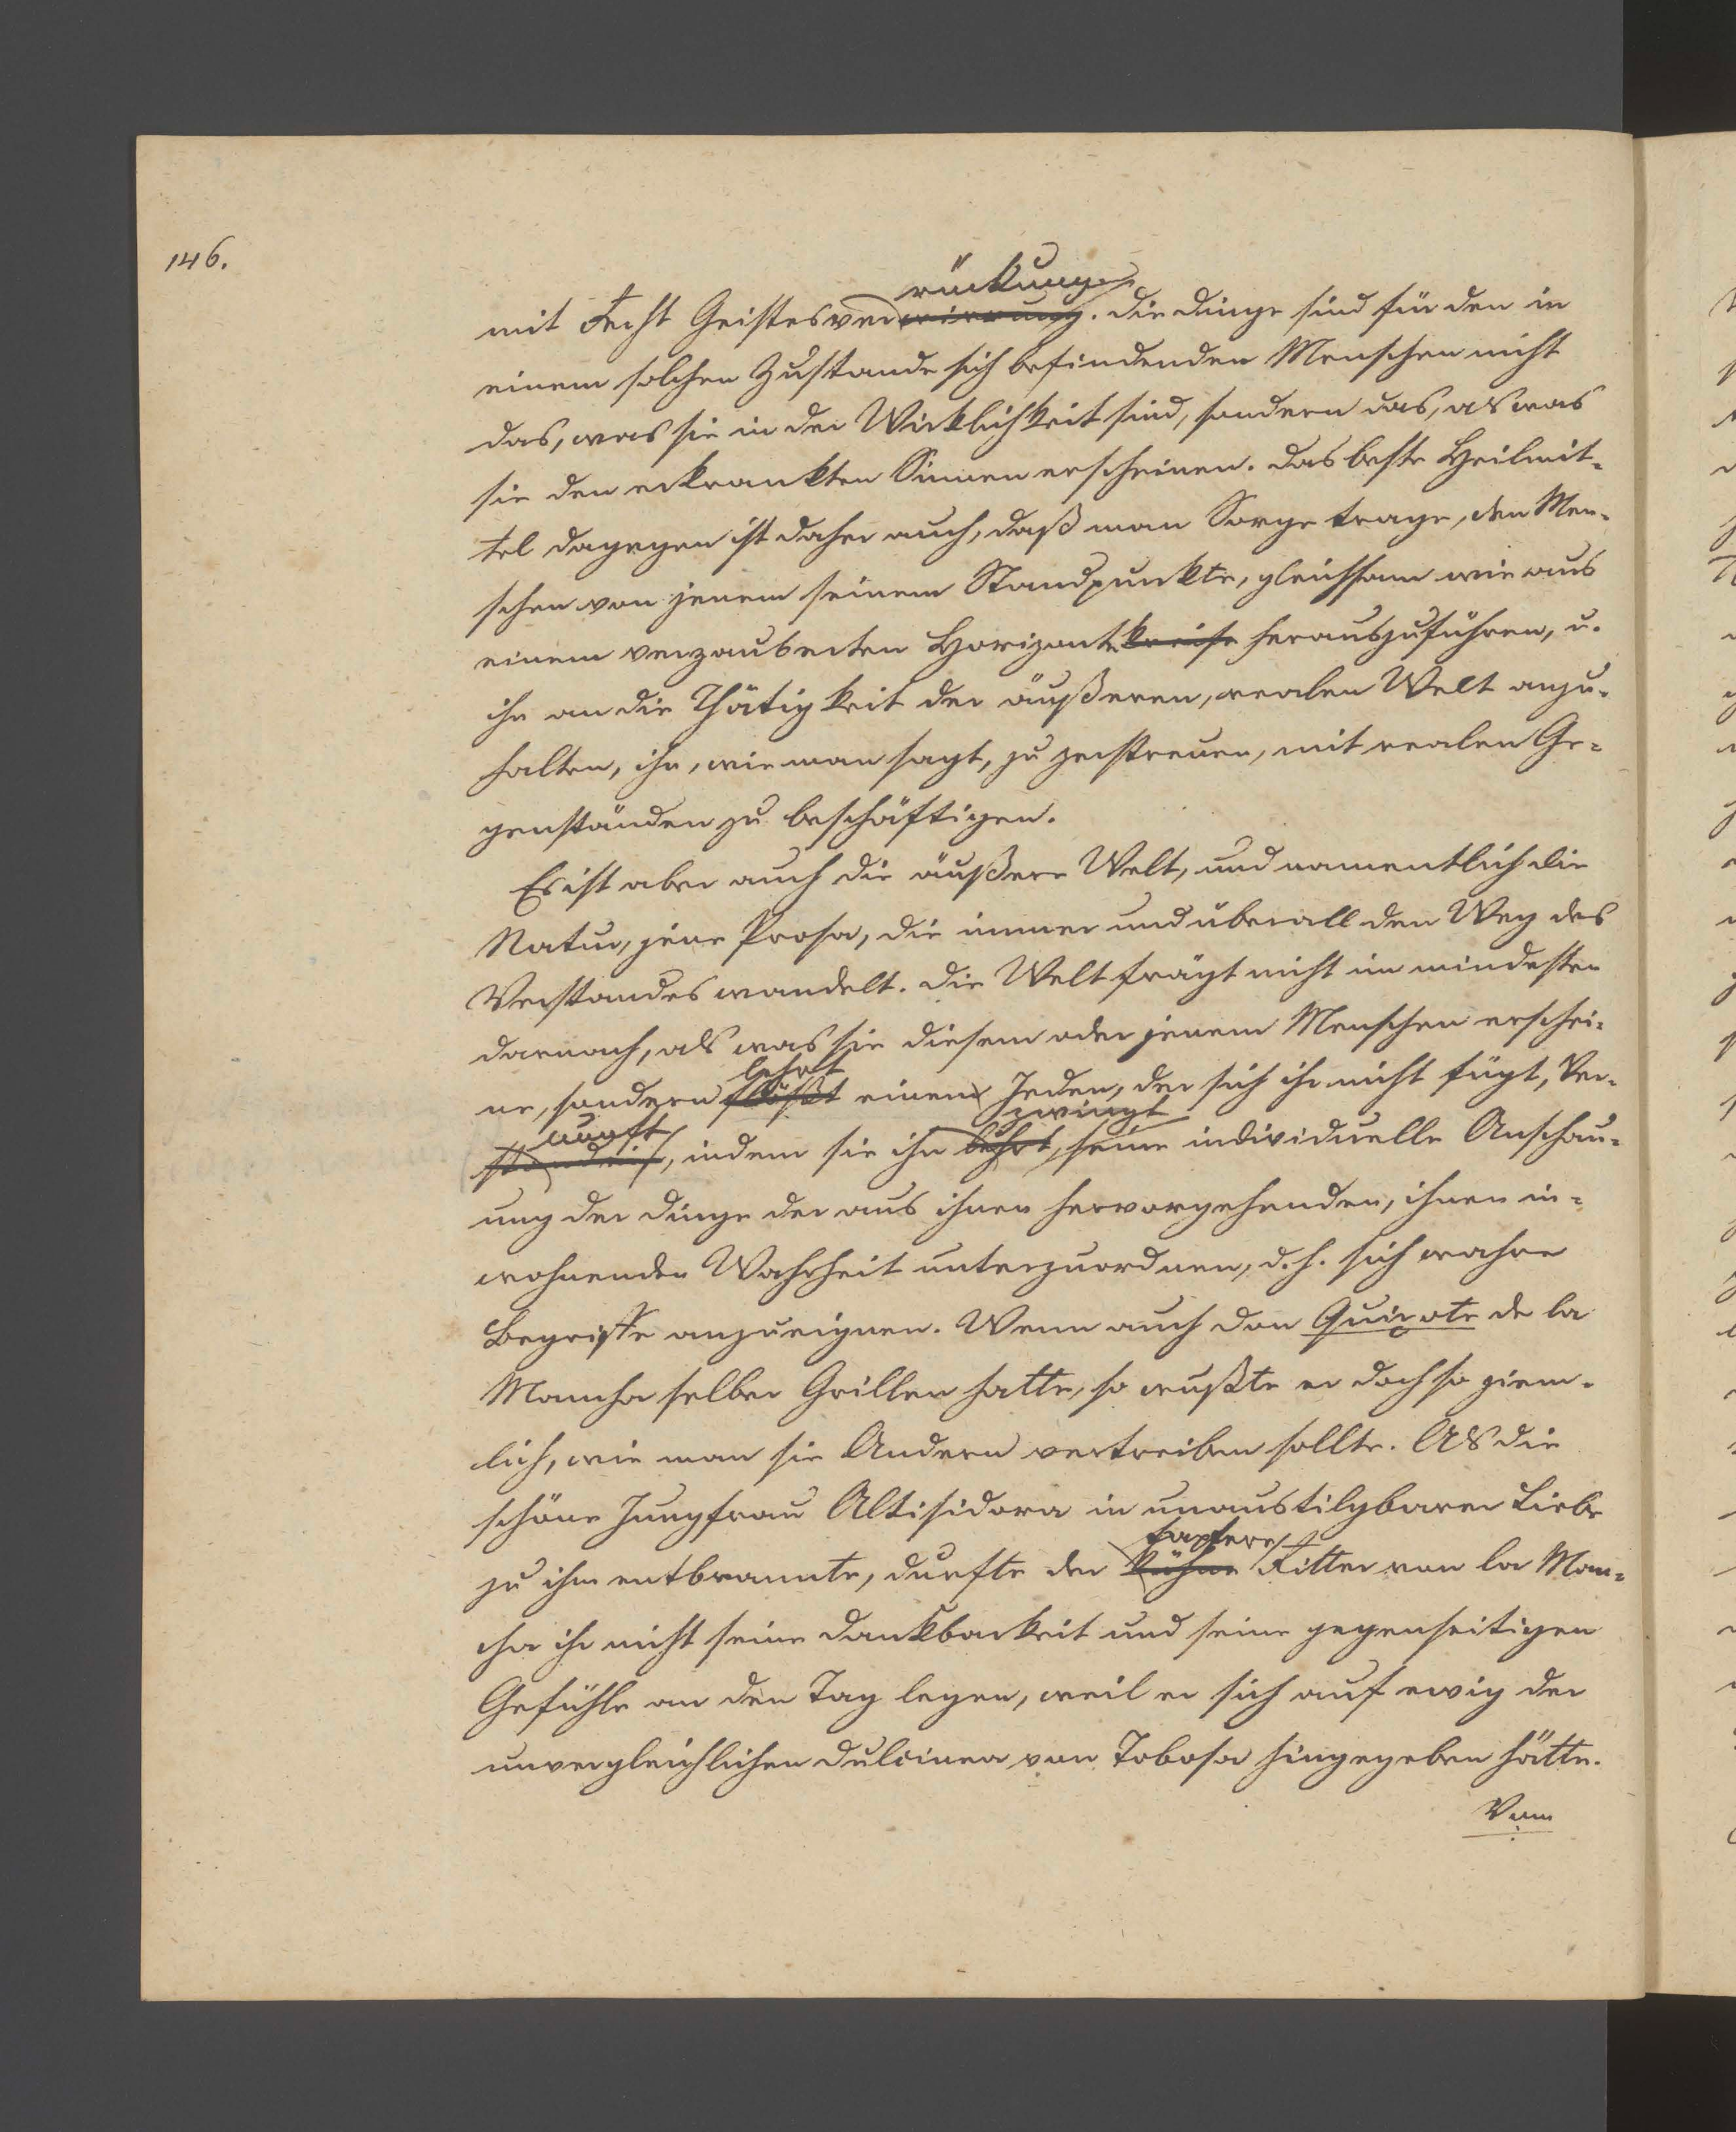 146.
rückung
mit Recht Geistesverwirrung. Die Dinge sind für den in
einem solchen Zustande sich befindenden Menschen nicht
das, was sie in der Wirklichkeit sind, sondern das, als was
sie den erkrankten Sinnen erscheinen. Das beste Heilmit-
tel dagegen ist daher auch, daß man Sorge trage, den Men-
schen von jenem seinem Standpunkte, gleichsam wie aus
einem verzauberten Horizonte kreise herauszuführen, u.
ihn an die Thätigkeit der äußeren, realen Welt anzu-
halten, ihn, wie man sagt, zu zerstreuen, mit realen Ge-
genständen zu beschäftigen.
Es ist aber auch die äußere Welt, und namentlich die
Natur, jene Prosa, die immer und überall den Weg des
Verstandes wandelt. Die Welt frägt nicht im mindesten
darnach, als was sie diesem oder jenem Menschen erschei-
lehrt
ne, sondern flößt einem Jeden, der sich ihr nicht fügt, Ver-
nunft zwingt
ständniß, indem sie ihn lehrt, seine individuelle Anschau-
ung der Dinge der aus ihnen hervorgehenden, ihnen in-
wohnenden Wahrheit unterzuordnen, d. h. sich wahre
Begriffe anzueignen. Wenn auch Don Quixote de la
Mancha selber Grillen hatte, so wußte er doch so ziem-
lich, wie man sie Andern vertreiben sollte. Als die
schöne Jungfrau Altisidora in unaustilgbarer Liebe
tapfere
zu ihm entbrannte, durfte der kühne Ritter von la Man-
cha ihr nicht seine Dankbarkeit und seine gegenseitigen
Gefühle an den Tag legen, weil er sich auf ewig der
unvergleichlichen Dulcinea von Tobosa hingegeben hätte.
Vom